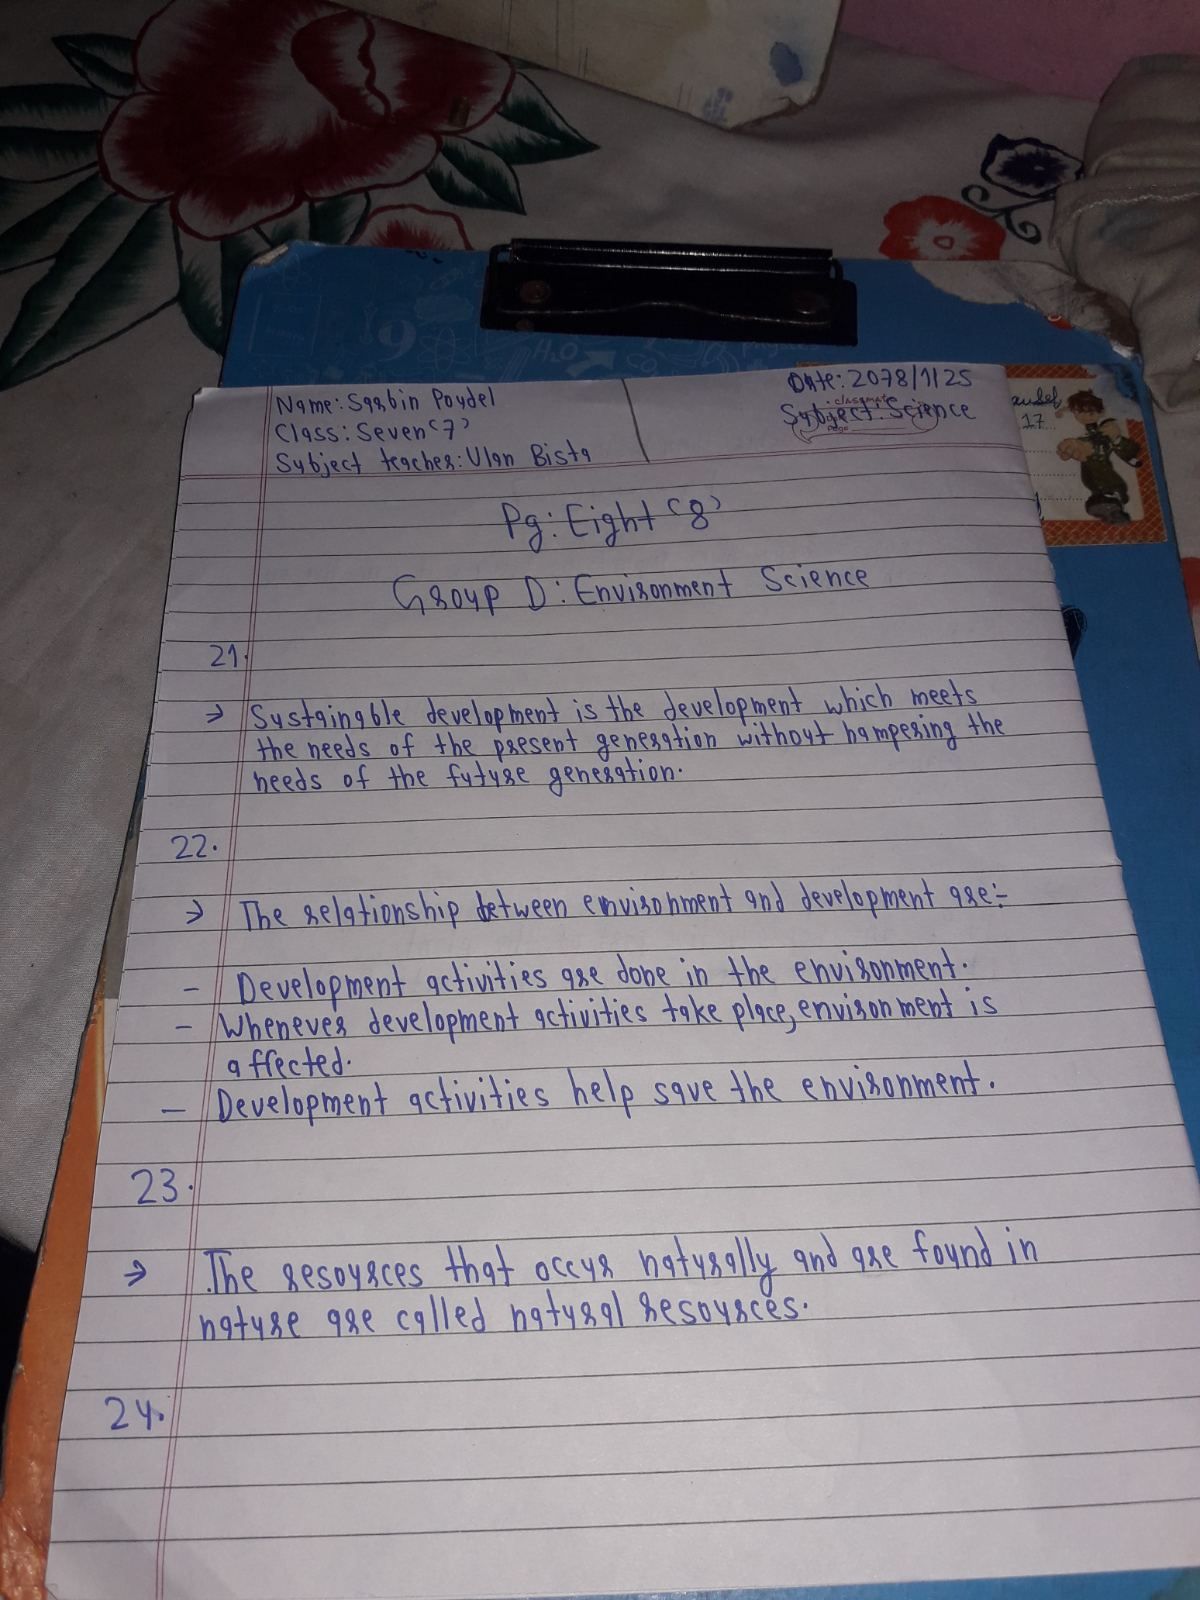 Name: Sarbin Poudel
Class: Seven '7'
Subject teacher: Ulan Bista
Date: 2078/1/25
classmate
Subject: Science
Page
17
Pg: Eight '8'
Group D: Environment Science
21.
→ Sustainable development is the development which meets
the needs of the present generation without hampering the
needs of the future generation.
22.
→ The relationship between environment and development are:-
- Development activities are done in the environment.
- Whenever development activities take place, environment is
affected.
- Development activities help save the environment.
23.
→ The resources that occur naturally and are found in
nature are called natural resources.
24.
H₂O
9